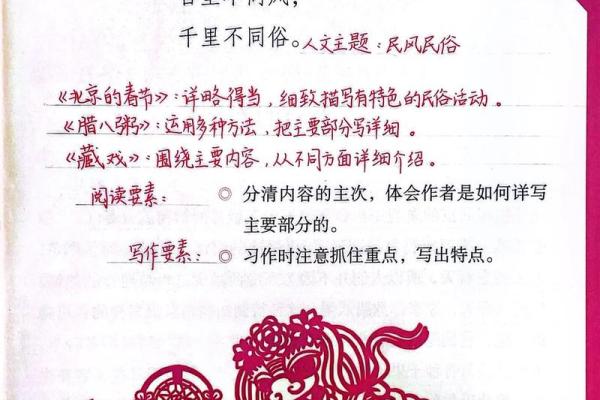 千里不同俗。人文主题:民风民俗
《北京的春节》:详略得当,细致描写有特色的民俗活动。
《腊八粥》:运用多种方法,把主要部分写详细。
《藏戏》:围绕主要内容,从不同方面详细介绍。
阅读要素: ◎ 分清内容的主次,体会作者是如何详写
主要部分的。
写作要素: ◎ 习作时注意抓住重点,写出特点。